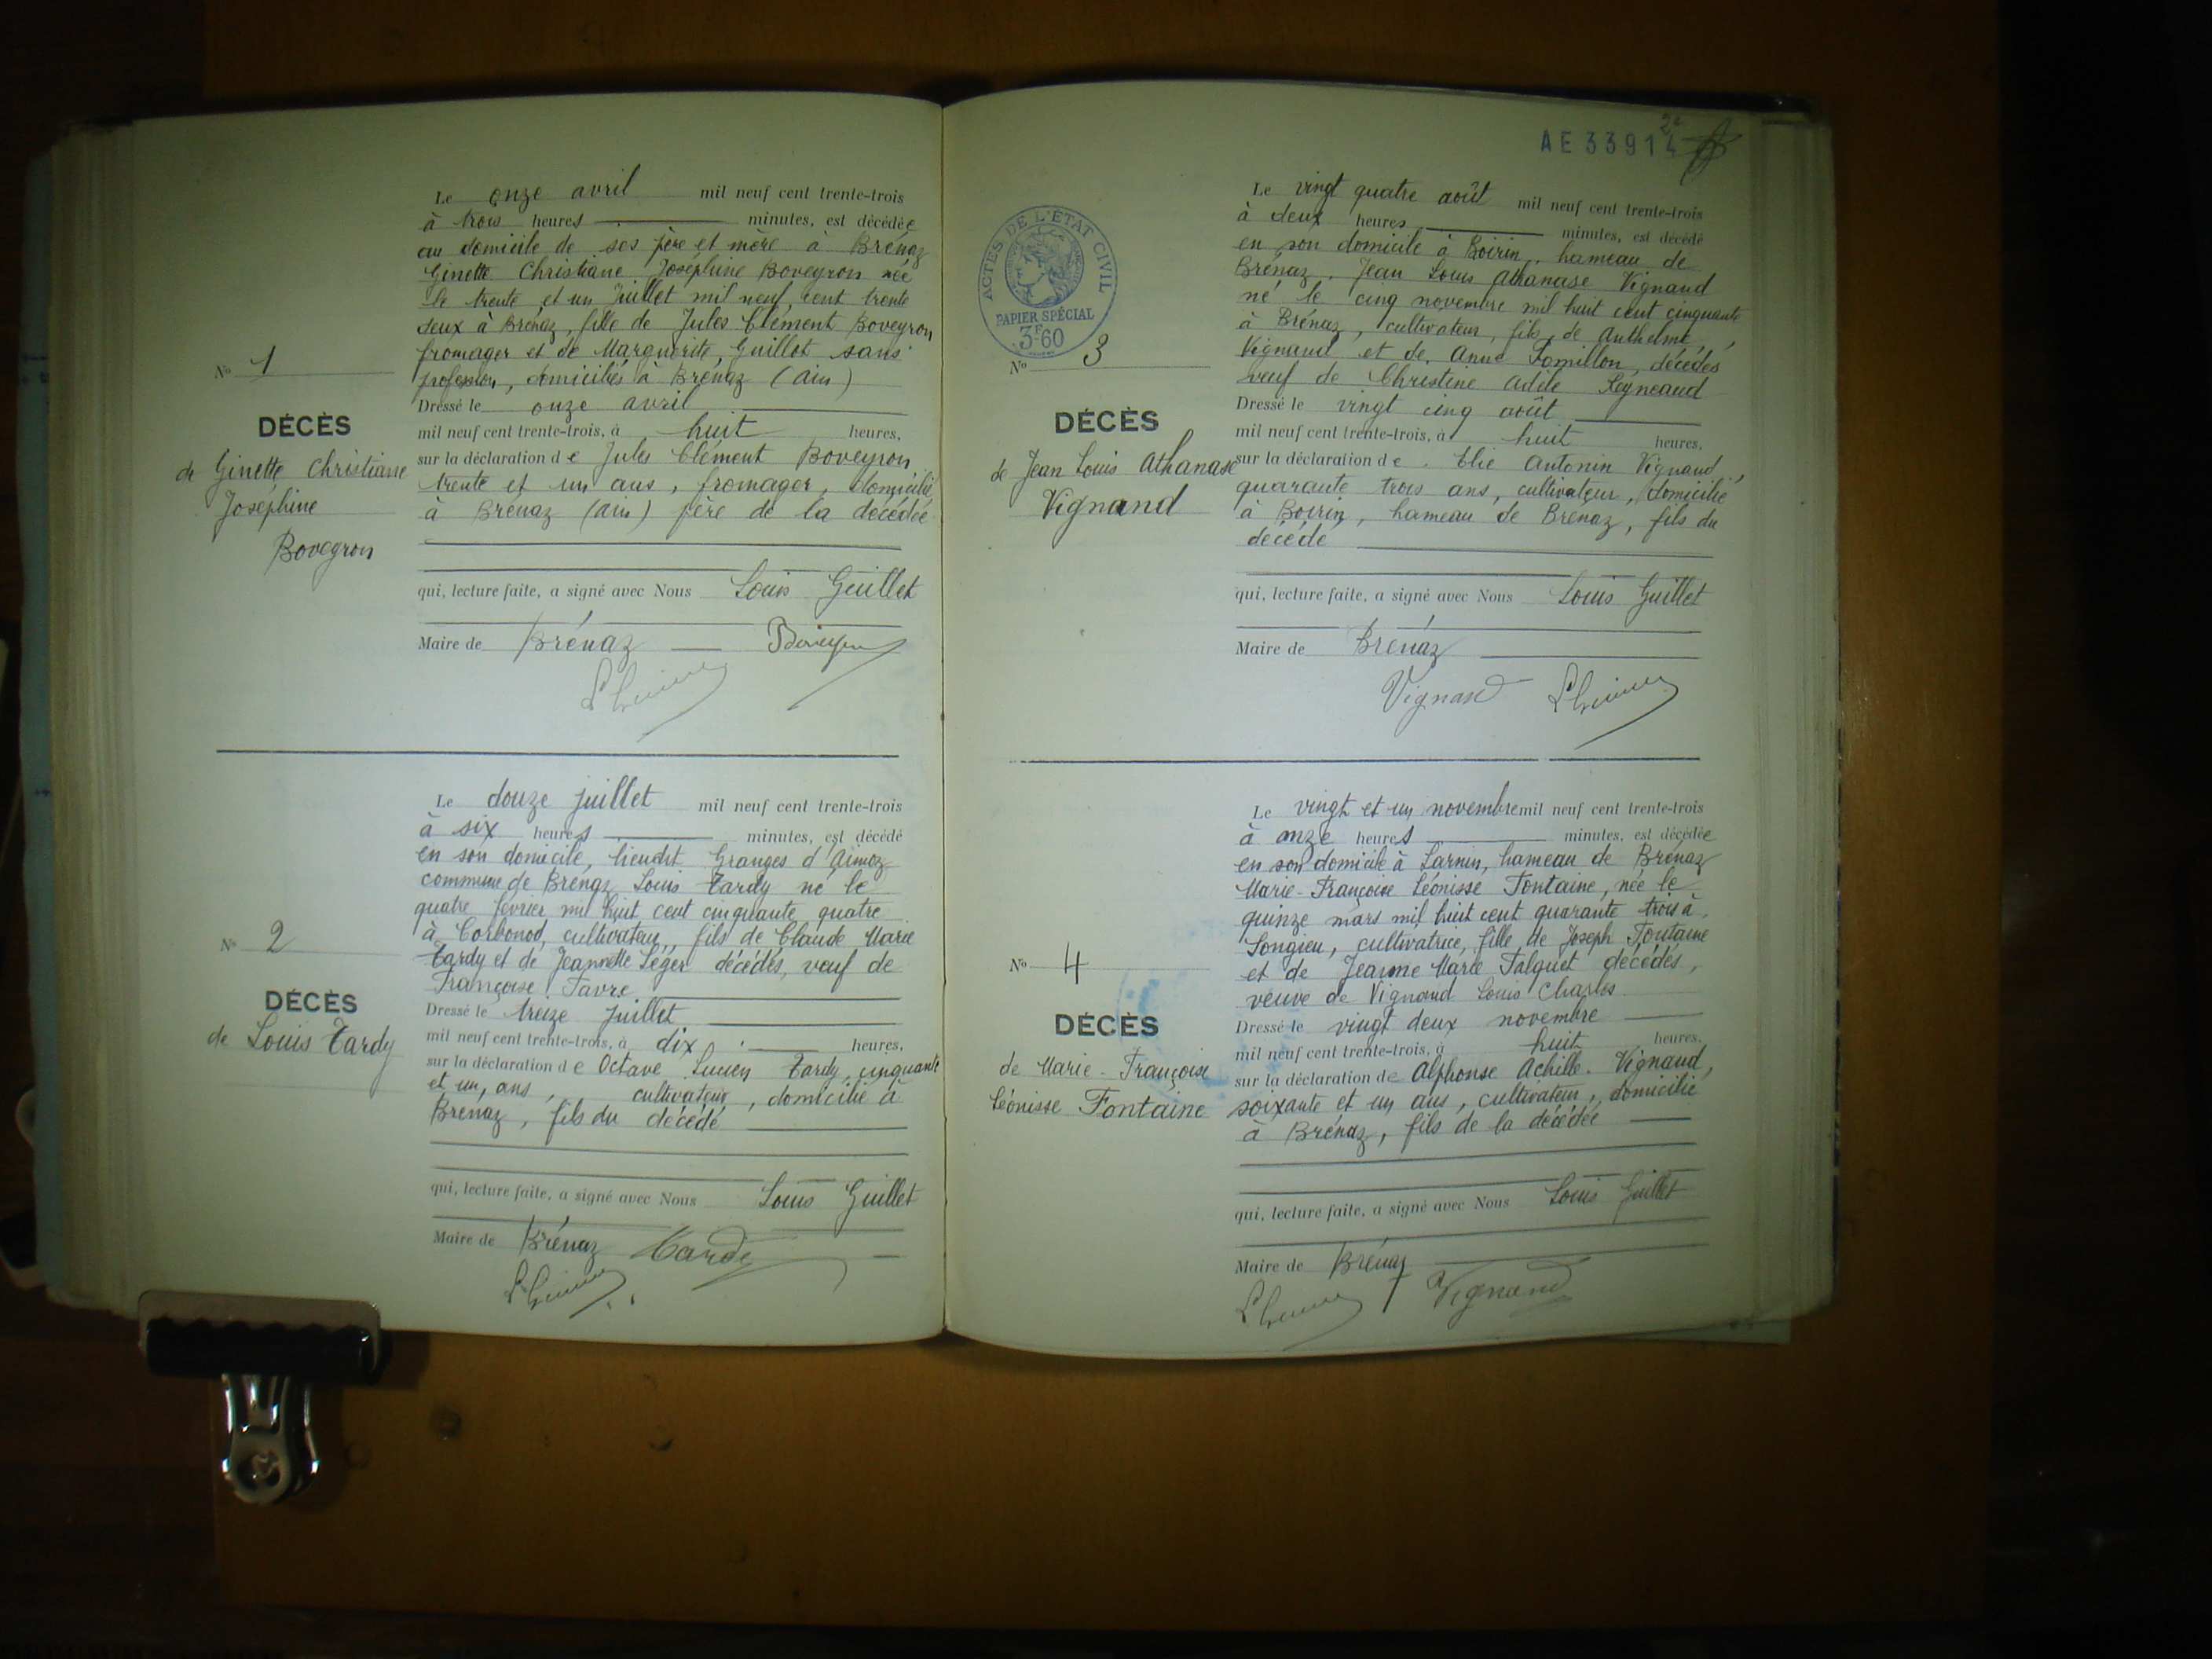 Le onze avril mil neuf cent trente-trois
à trois heures minutes, est décédée
au domicile de ses père et mère à Brénaz
Ginette Christiane Joséphine Boveyron née
le trente et un Juillet mil neuf cent trente
deux à Brénaz, fille de Jules Clément Boveyron
fromager et de Marguerite Guillot sans
profession, domiciliés à Brénaz (Ain)
No 1
DÉCÈS
de Ginette Christiane
Joséphine
Boveyron
Dressé le onze avril
mil neuf cent trente-trois, à huit heures,
sur la déclaration de Jules Clément Boveyron
trente et un ans, fromager, domicilié
à Brénaz (Ain) père de la décédée
qui, lecture faite, a signé avec Nous Louis Guillet
Maire de Brénaz
Le douze juillet mil neuf cent trente-trois
à six heures minutes, est décédé
en son domicile, lieudit Granges d'Aimoz
commune de Brénaz Louis Tardy né le
quatre février mil huit cent cinquante quatre
à Corbonod, cultivateur, fils de Claude Marie
Tardy et de Jeannette Léger décédés, veuf de
Françoise Favre
No 2
DÉCÈS
de Louis Tardy
Dressé le treize juillet
mil neuf cent trente-trois, à dix heures,
sur la déclaration de Octave Lucien Tardy, cinquante
et un, ans, cultivateur, domicilié à
Brénaz, fils du décédé
qui, lecture faite, a signé avec Nous Louis Guillet
Maire de Brénaz Tardy
2e
AE 33914
ACTES DE L'ÉTAT CIVIL
PAPIER SPÉCIAL
3F60
Le vingt quatre août mil neuf cent trente-trois
à deux heures minutes, est décédé
en son domicile à Boirin, hameau de
Brénaz, Jean Louis Athanase Vignand
né le cinq novembre mil huit cent cinquante
à Brénaz, cultivateur, fils de Anthelme
Vignand et de Anne Fomillon, décédés
veuf de Christine Adèle Seyneaud
No 3
DÉCÈS
de Jean Louis Athanase
Vignand
Dressé le vingt cinq août
mil neuf cent trente-trois, à huit heures,
sur la déclaration de Elie Antonin Vignand,
quarante trois ans, cultivateur, domicilié
à Boirin, hameau de Brénaz, fils du
décédé
qui, lecture faite, a signé avec Nous Louis Guillet
Maire de Brénaz
Vignand
Le vingt et un novembre mil neuf cent trente-trois
à onze heures minutes, est décédée
en son domicile à Larnin, hameau de Brénaz
Marie-Françoise Léonisse Fontaine, née le
quinze mars mil huit cent quarante trois à
Songieu, cultivatrice, fille de Joseph Fontaine
et de Jeanne Marie Falquet décédés,
veuve de Vignand Louis Charles
No 4
DÉCÈS
de Marie-Françoise
Léonisse Fontaine
Dressé le vingt deux novembre
mil neuf cent trente-trois, à huit heures,
sur la déclaration de Alphonse Achille Vignand,
soixante et un ans, cultivateur, domicilié
à Brénaz, fils de la décédée
qui, lecture faite, a signé avec Nous Louis Guillet
Maire de Brénaz
Vignand